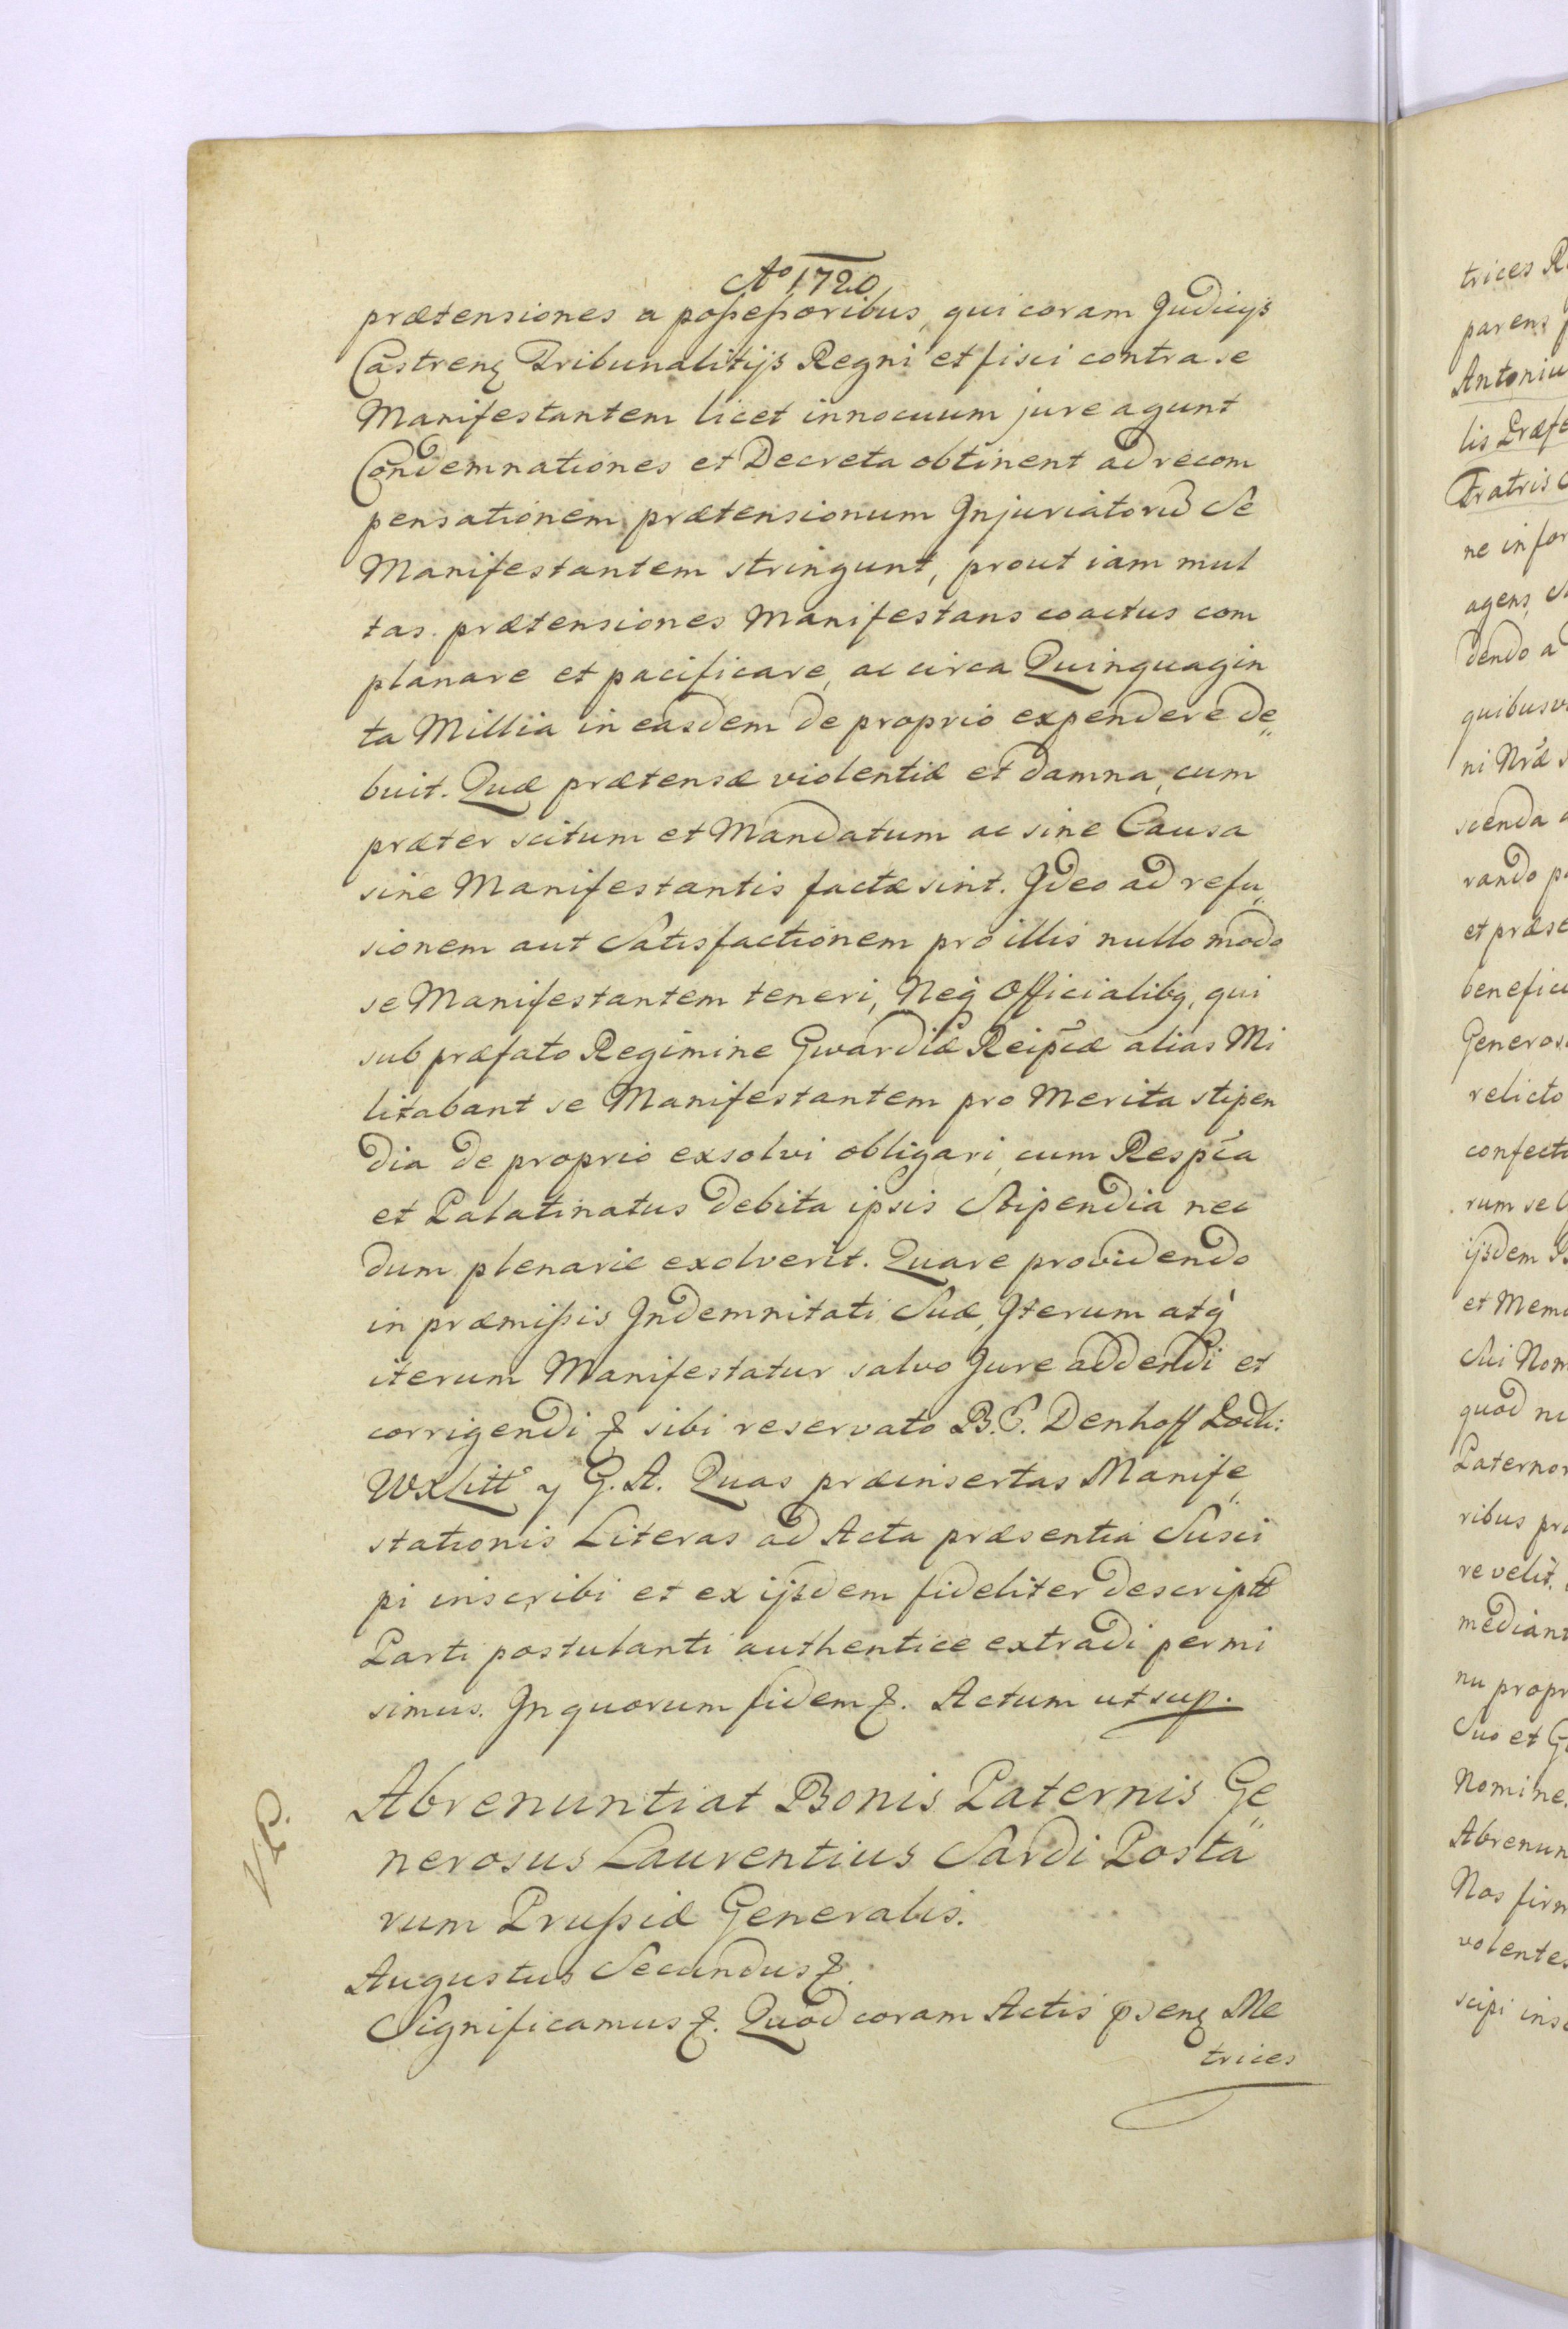 Aº 1720
prætensiones a poßeßoribus, qui coram Judicijs
Castrenꝫ Tribunalitijs Regni et fisci contra se
Manifestantem licet innocuum jure agunt
Condemnationes et Decreta obtinent ad recom
pensationem prætensionum Injuriatorũ Se
Manifestantem stringunt, prout iam mul
tas prætensiones Manifestans coactus com
planare et pacificare, ac circa Quinquagin
ta Millia in easdem de proprio expendere de„
buit. Quæ prætensæ violentiæ et damna, cum
præter scitum et Mandatum ac sine Causa
sine Manifestantis factæ sint. Ideo ad refu„
sionem aut Satisfactionem pro illis nullo modo
se Manifestantem teneri, Neq̀ Officialibq, qui
sub præfato Regimine Gwardiæ Reip̃cæ alias Mi
litabant se Manifestantem pro Merita stipen
dia de proprio exsolvi obligari, cum Resp̃ca
et Palatinatus debita ipsis Stipendia nec
dum plenarie exolverit. Quare providendo
in præmißis Indemnitati Suæ, Iterum atq̀
iterum Manifestatur salvo Jure addendi et
corrigendi & sibi reservato B. P. Denhoff Podk:
WXLittº y G. A. Quas præinsertas Manife„
stationis Literas ad Acta præsentia Susci
pi inscribi et ex ijsdem fideliter descriptũ
Parti postulanti authentice extradi permi
simus. In quorum fidem &. Actum ut sup.
V. P.
Abrenuntiat Bonis Paternis Ge„
nerosus Laurentius Sardi Posta
rum Prußiæ Generalis.
Augustus Secundus &.
Significamus &. Quod coram Actis p̃senꝫ Me
trices
trices R
parens
Antoniu
lis Præfe
Fratris
ne infor
agens
dendo a
quibusv
ni Nr̃æ
scenda
rando p
et præse
benefici
Generos
relicto
confect
rum se
ijsdem
et Mem
Sui Nom
quod n
Paterno
ribus pr
re velit.
median
nu propr
Suo et G
Nomine
Abrenun
Nos firm
volentes
scipi ins